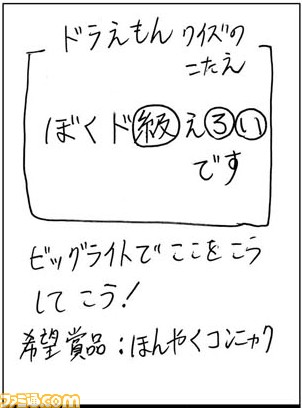 ドラえもん クイズの
こたえ
ぼくド級えろい
です
ビッグライトで ここをこう
して こう!
希望賞品:ほんやくコンニャク
ファミ通.com